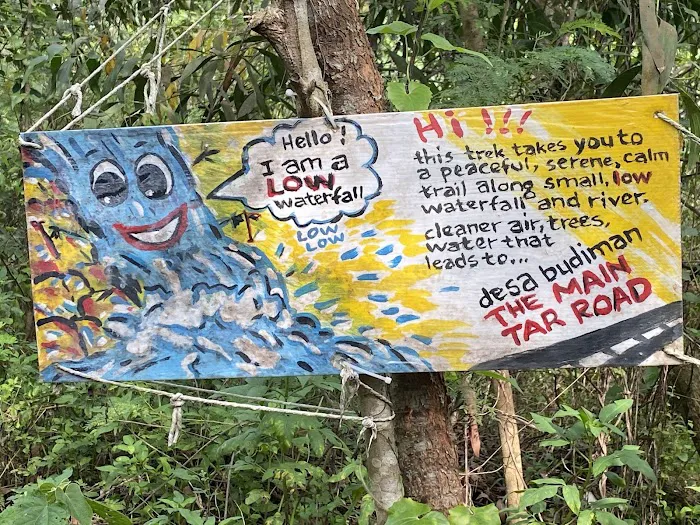 Hello!
I am a
LOW
waterfall
LOW
LOW
Hi !!!
this trek takes you to
a peaceful, serene, calm
trail along small, low
waterfall and river.
cleaner air, trees,
water that
leads to...
desa budiman
THE MAIN
TAR ROAD